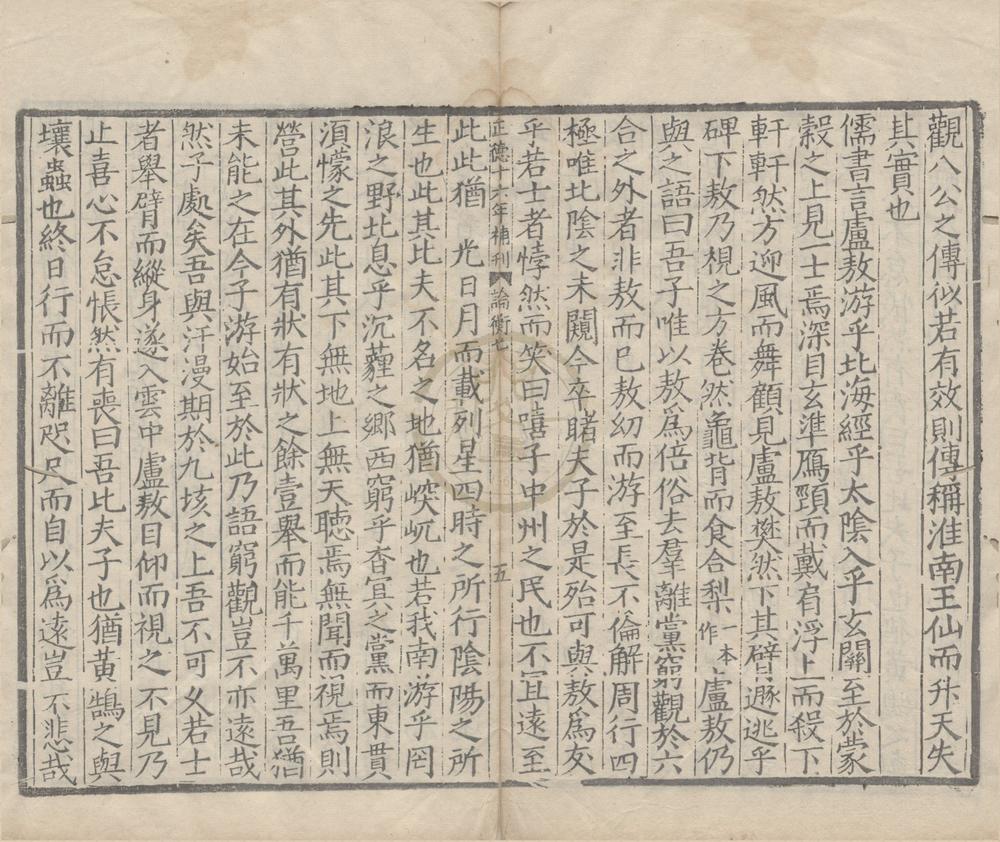 觀八公之傳似若有效則傳稱淮南王仙而升天失
其實也
儒書言盧敖游乎北海經乎太陰入乎玄關至於蒙
穀之上見一士焉深目玄準鴈頸而戴肩浮上而殺下
軒軒然方迎風而舞顧見盧敖樊然下其臂遯逃乎
碑下敖乃視之方卷然龜背而食合梨一本作盧敖仍
與之語曰吾子唯以敖爲倍俗去羣離黨窮觀於六
合之外者非敖而已敖幼而游至長不倫解周行四
極唯北陰之未闚今卒睹夫子於是殆可與敖爲友
乎若士者悖然而笑曰嘻子中州之民也不宜遠至
正德十六年補刊 論衡七 五
此此猶光日月而載列星四時之所行陰陽之所
生也此其比夫不名之地猶㟮屼也若我南游乎罔
浪之野北息乎沉薶之鄉西窮乎杳冥之黨而東貫
湏懞之先此其下無地上無天聽焉無聞而視焉則
營此其外猶有狀有狀之餘壹舉而能千萬里吾猶
未能之在今子游始至於此乃語窮觀豈不亦遠哉
然子處矣吾與汗漫期於九垓之上吾不可久若士
者舉臂而縱身遂入雲中盧敖目仰而視之不見乃
止喜心不怠悵然有喪曰吾比夫子也猶黃鵠之與
壤蟲也終日行而不離咫尺而自以爲遠豈不悲哉